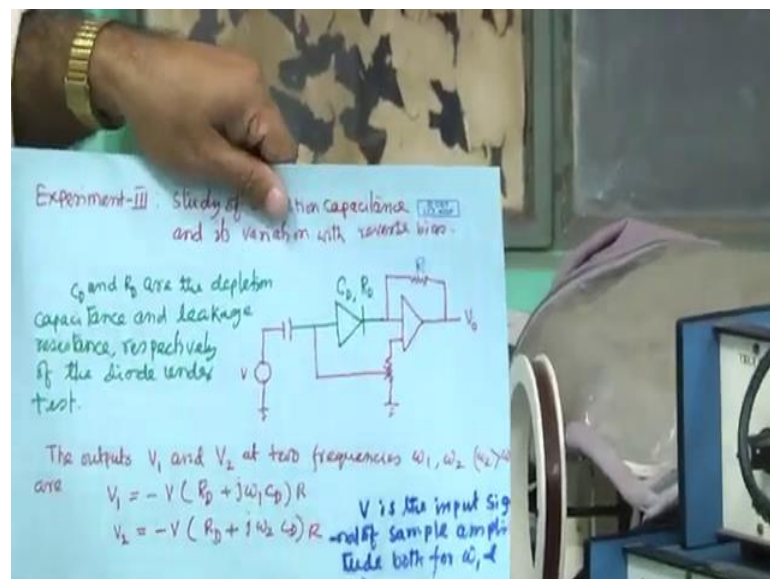 Experiment-III. Study of tion capacitance
and its variation with reverse bias.
C_D and R_D are the depletion
capacitance and leakage
resistance, respectively
of the diode under
test.
C_D, R_D
R
V_0
V
The outputs V_1 and V_2 at two frequencies ω_1, ω_2 (ω_2>ω
are
V_1 = -V(R_D + jω_1 C_D) R
V_2 = -V(R_D + jω_2 C_D) R
V is the input sig
-nal of sample ampli
tude both for ω_1 &